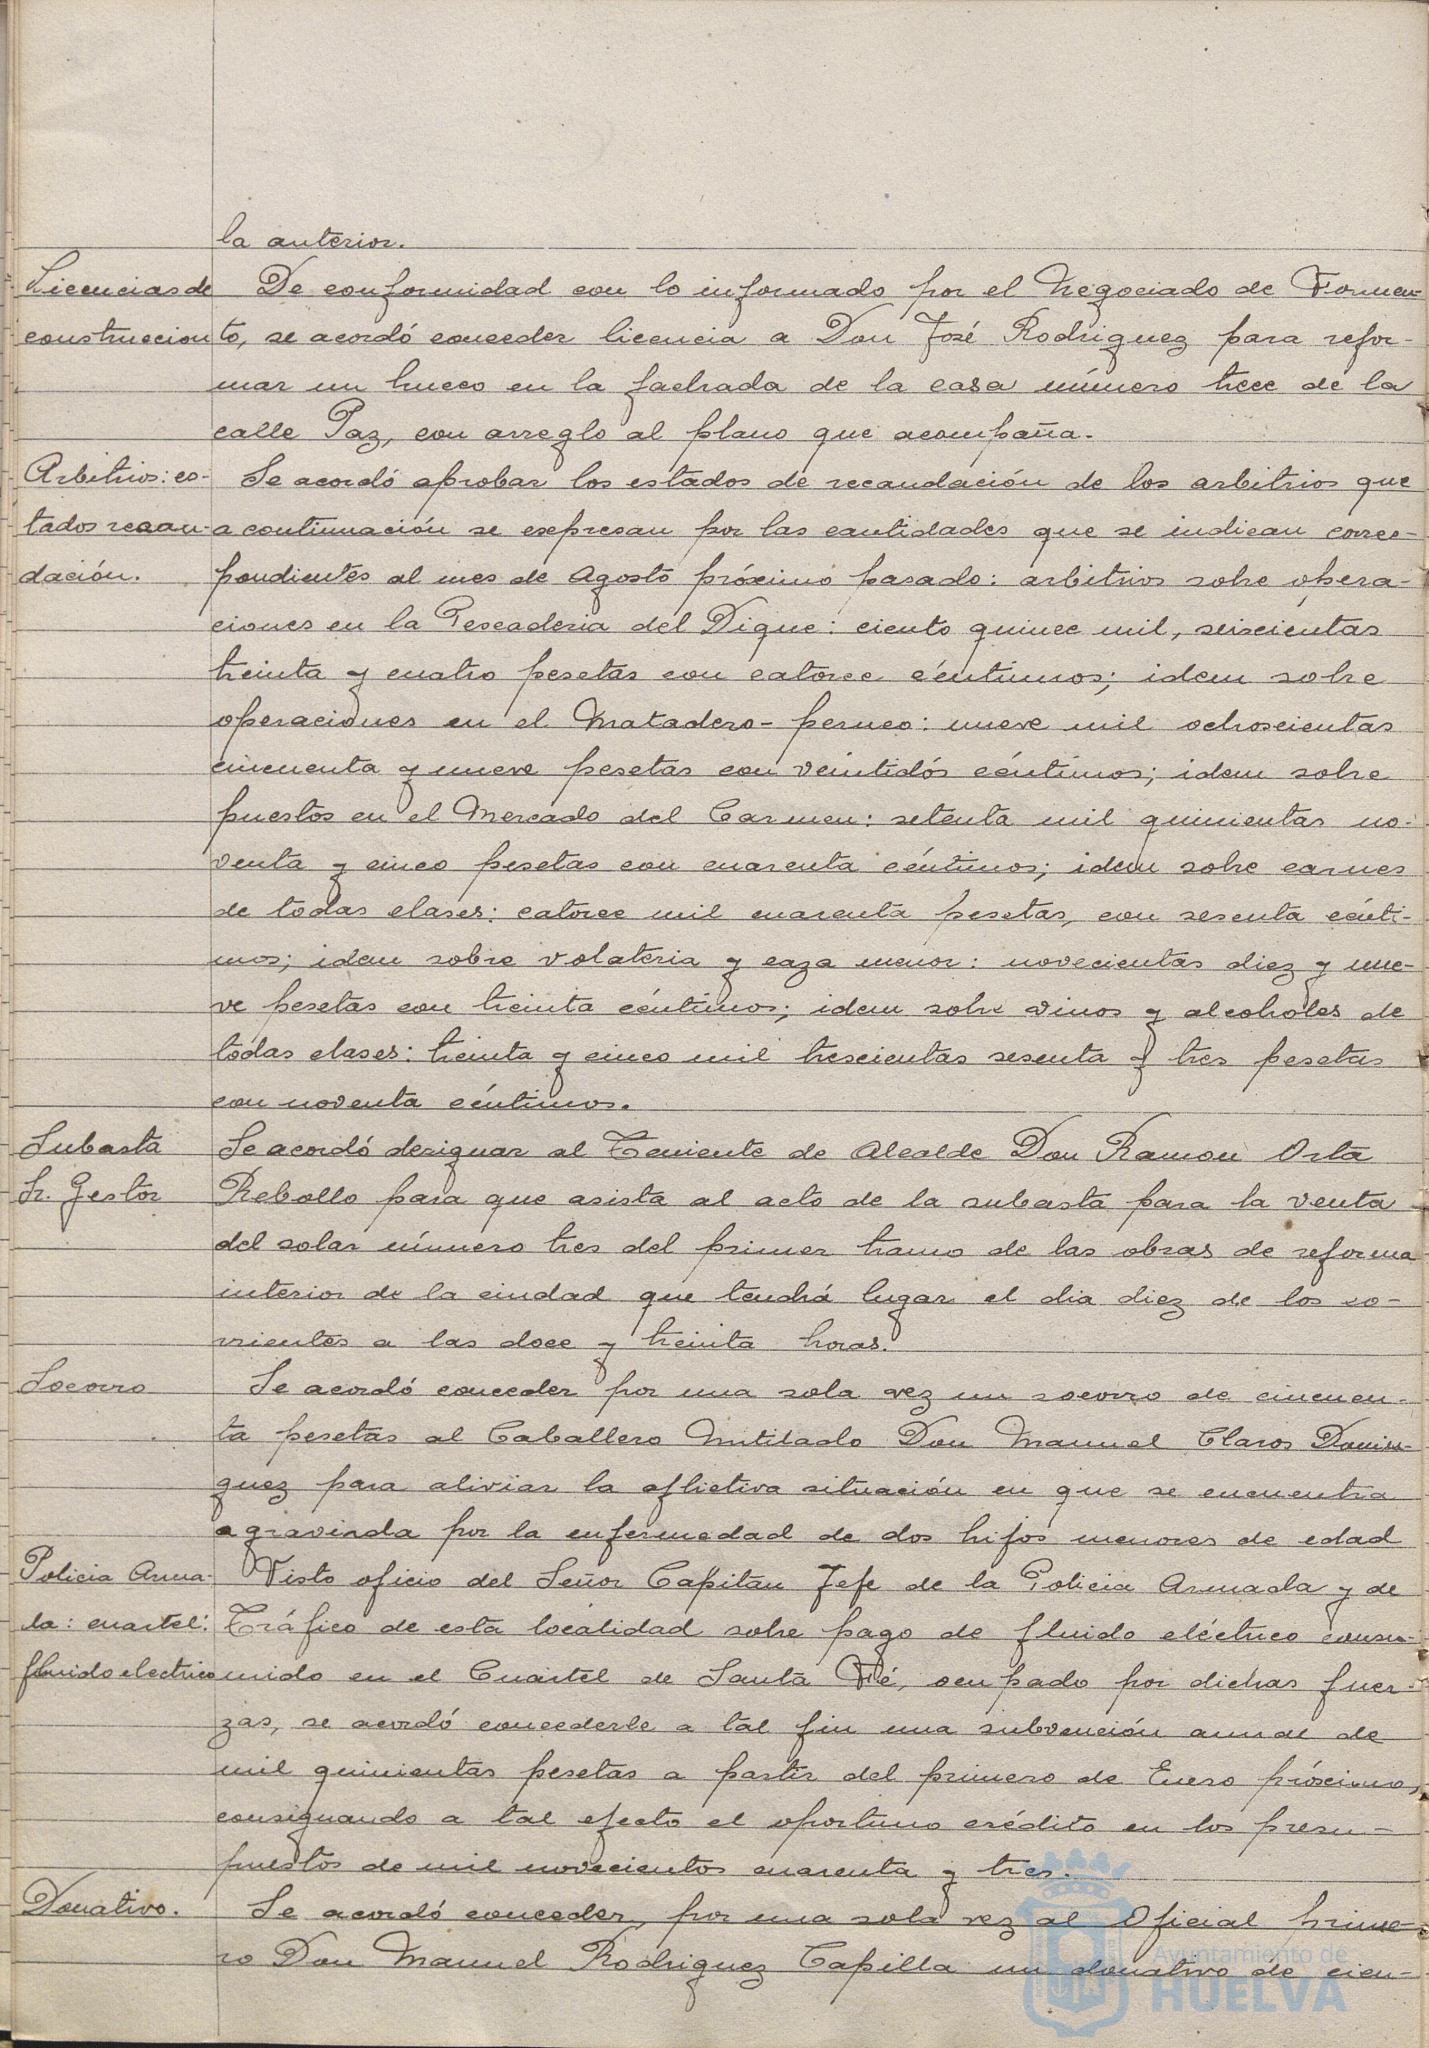 la anterior.
Licencias de
construccion
De conformidad con lo informado por el Negociado de Fomen-
to, se acordó conceder licencia a Don José Rodriguez para refor-
mar un hueco en la fachada de la casa número trece de la
calle Paz, con arreglo al plano que acompaña.
Arbitrios: es-
tados recau-
dación.
Se acordó aprobar los estados de recaudación de los arbitrios que
a continuación se expresan por las cantidades que se indican corres-
pondientes al mes de Agosto próximo pasado: arbitrios sobre opera-
ciones en la Pescaderia del Dique: ciento quince mil, seiscientas
treinta y cuatro pesetas con catorce céntimos; idem sobre
operaciones en el Matadero-perneo: nueve mil ochoscientas
cincuenta y nueve pesetas con veintidós céntimos; idem sobre
puestos en el Mercado del Carmen: setenta mil quinientas no-
venta y cinco pesetas con cuarenta céntimos; idem sobre carnes
de todas clases: catorce mil cuarenta pesetas, con sesenta cénti-
mos; idem sobre volateria y caza menor: novecientas diez y nue-
ve pesetas con treinta céntimos; idem sobre vinos y alcoholes de
todas clases: treinta y cinco mil trescientas sesenta y tres pesetas
con noventa céntimos.
Subasta
Sr. Gestor
Se acordó designar al Teniente de Alcalde Don Ramon Orta
Rebollo para que asista al acto de la subasta para la venta
del solar número tres del primer tramo de las obras de reforma
interior de la ciudad que tendrá lugar el dia diez de los co-
rrientes a las doce y treinta horas.
Socorro
Se acordó conceder por una sola vez un socorro de cincuen-
ta pesetas al Caballero Mutilado Don Manuel Claros Domin-
guez para aliviar la aflictiva situación en que se encuentra
agravada por la enfermedad de dos hijos menores de edad
Policia Arma-
da: cuartel:
fluido electrico
Visto oficio del Señor Capitan Jefe de la Policia Armada y de
Tráfico de esta localidad sobre pago de fluido eléctrico consu-
mido en el Cuartel de Santa Fé, ocupado por dichas fuer-
zas, se acordó concederle a tal fin una subvención anual de
mil quinientas pesetas a partir del primero de Enero próximo,
consignando a tal efecto el oportuno crédito en los presu-
puestos de mil novecientos cuarenta y tres.
Donativo.
Se acordó conceder, por una sola vez al Oficial prime-
ro Don Manuel Rodriguez Capilla un donativo de cien-
Ayuntamiento de
HUELVA